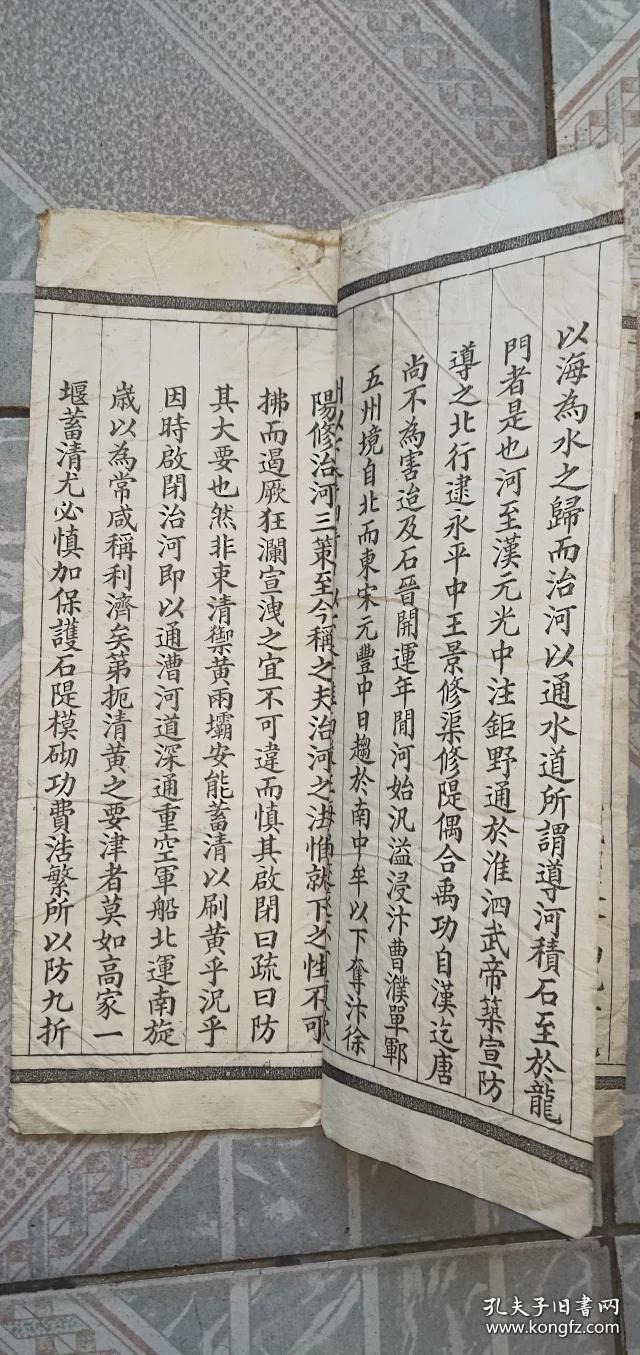 以海為水之歸而治河以通水道所謂導河積石至於龍
門者是也河至漢元光中注鉅野通於淮泗武帝築宣防
導之北行逮永平中王景修渠修隄偶合禹功自漢迄唐
尚不為害迨及石晉開運年閒河始汎溢浸汴曹濮單鄆
五州境自北而東宋元豐中日趨於南中牟以下奪汴徐
陽修治河三策至今稱之夫治河之法惟就下之性不可
拂而遏厥狂瀾宣洩之宜不可違而慎其啟閉曰疏曰防
其大要也然非束清禦黃兩壩安能蓄清以刷黃乎況乎
因時啟閉治河即以通漕河道深通重空軍船北運南旋
歲以為常咸稱利濟矣第扼清黃之要津者莫如高家一
堰蓄清尤必慎加保護石隄模砌功費浩繁所以防九折
孔夫子旧书网
www.kongfz.com